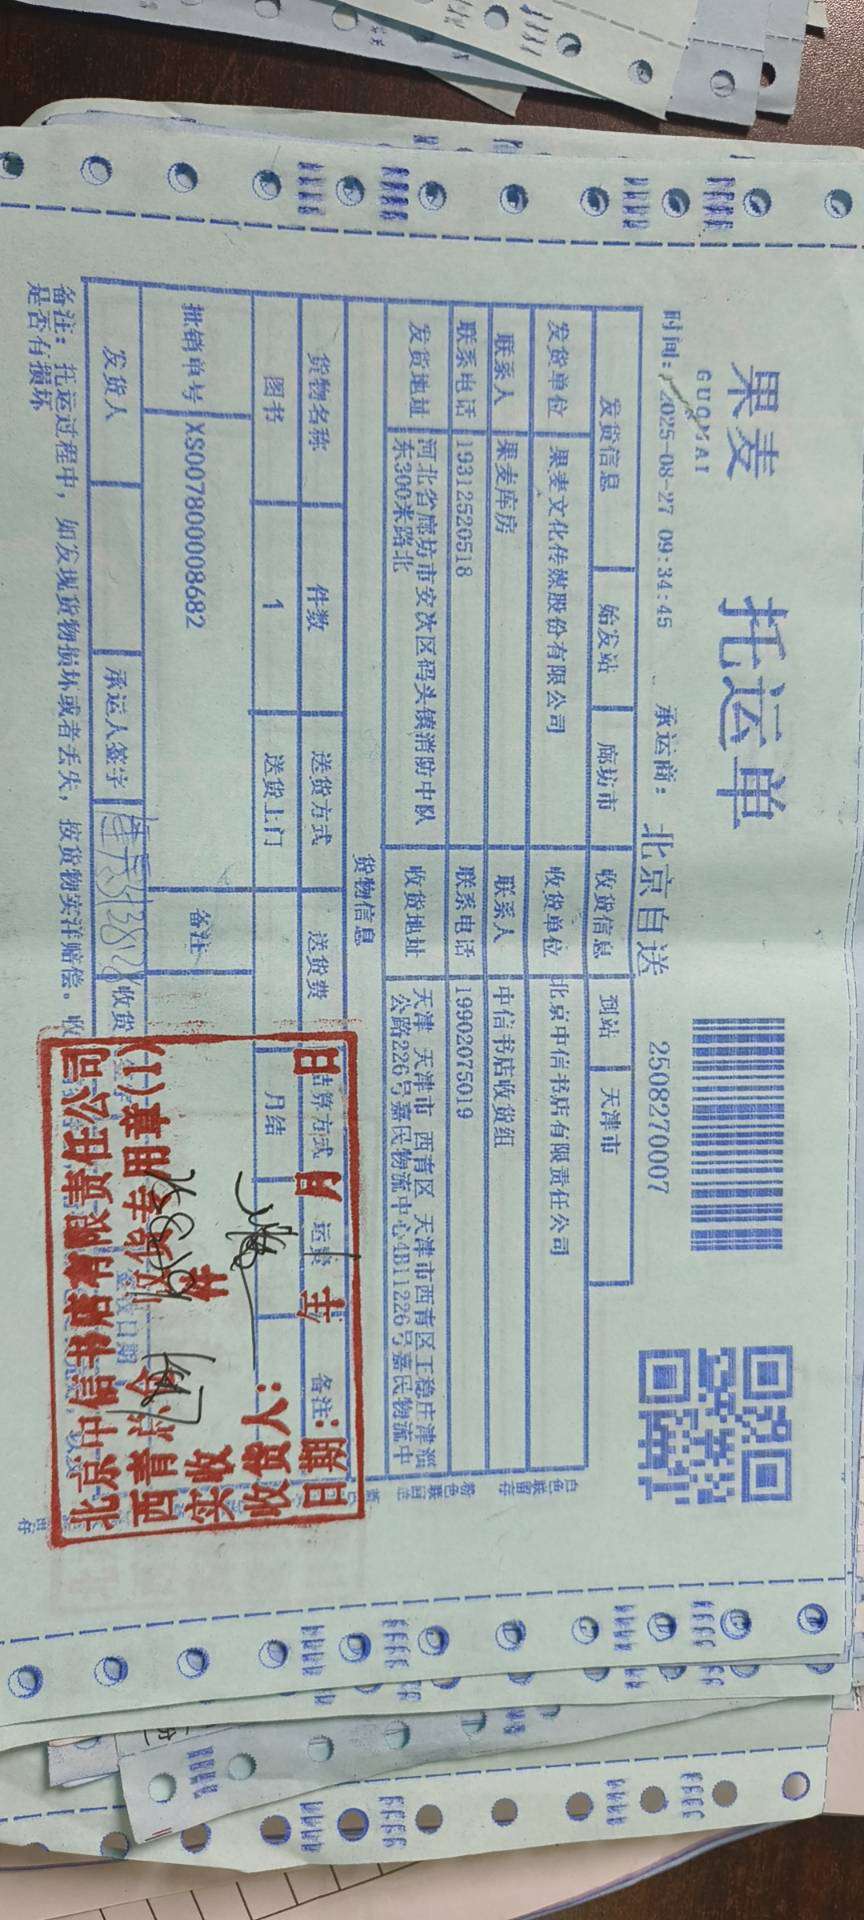 果麦
GUOMAI
托运单
2508270007
时间: 2025-08-27 09:34:45 承运商: 北京自送
发货信息 始发站 廊坊市 收货信息 到站 天津市
发货单位 果麦文化传媒股份有限公司 收货单位 北京中信书店有限责任公司
联系人 果麦库房 联系人 中信书店收货组
联系电话 19312520518 联系电话 19902075019
发货地址 河北省廊坊市安次区码头镇消防中队东300米路北 收货地址 天津 天津市 西青区 天津市西青区王稳庄津淄公路226号嘉民物流中心4B11226号嘉民物流中
货物信息
货物名称 件数 送货方式 送货费 结算方式 运费 备注
图书 1 送货上门 月结
批销单号 XS007800008682 备注
发货人 承运人签字 收货
备注: 托运过程中, 如发现货物损坏或者丢失, 按货物实洋赔偿。收
是否有损坏
白色联留存
北京中信书店有限责任公司
收货专用章(1)
实收 件
收货人:
日期: 年 月 日